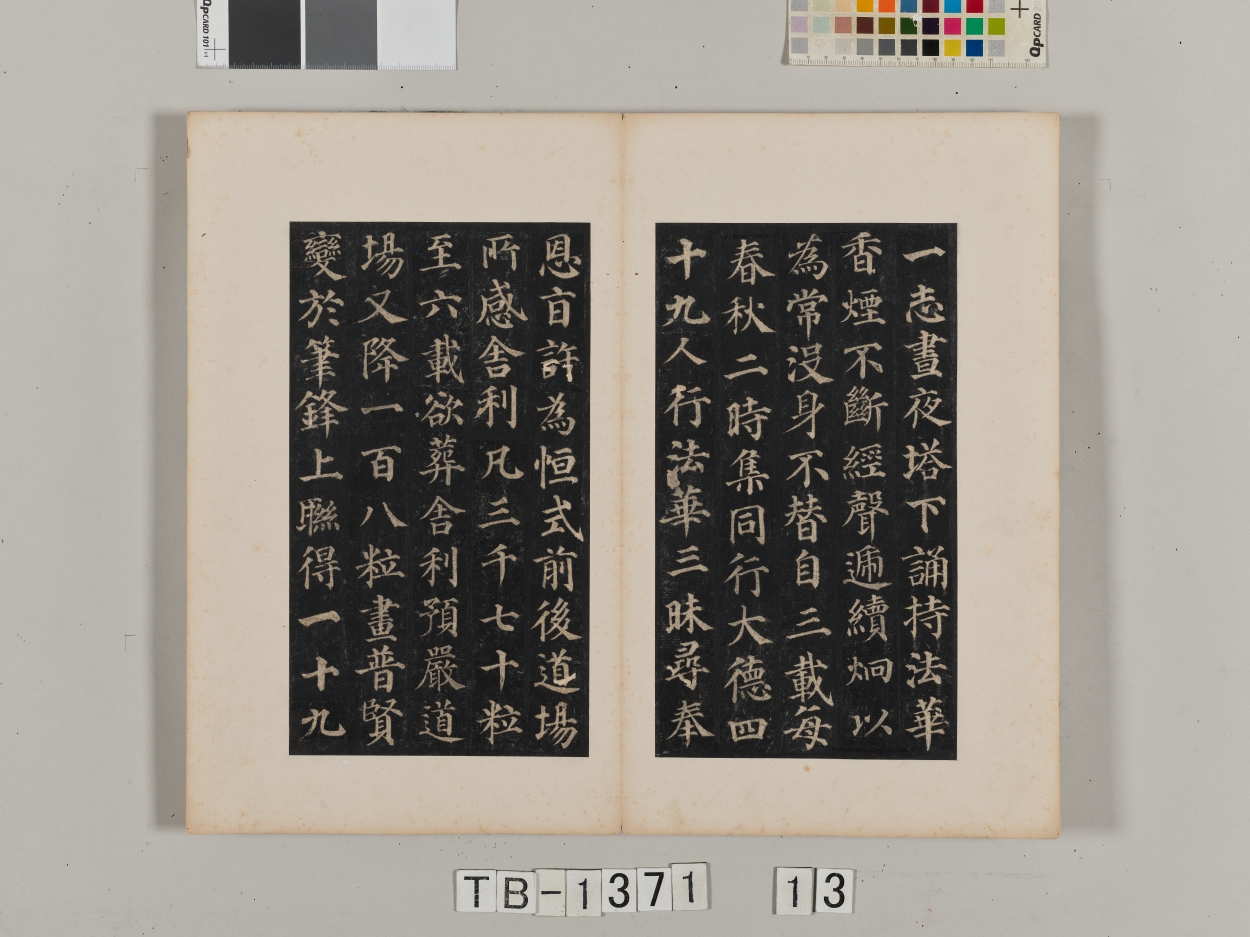 一志晝夜塔下誦持法華
香煙不斷經聲遞續烱以
為常没身不替自三載每
春秋二時集同行大德四
十九人行法華三昧尋奉
恩旨許為恒式前後道場
所感舍利凡三千七十粒
至六載欲葬舍利預嚴道
場又降一百八粒畫普賢
變於筆鋒上聯得一十九
QPCARD 101
QPCARD
TB-1371 13